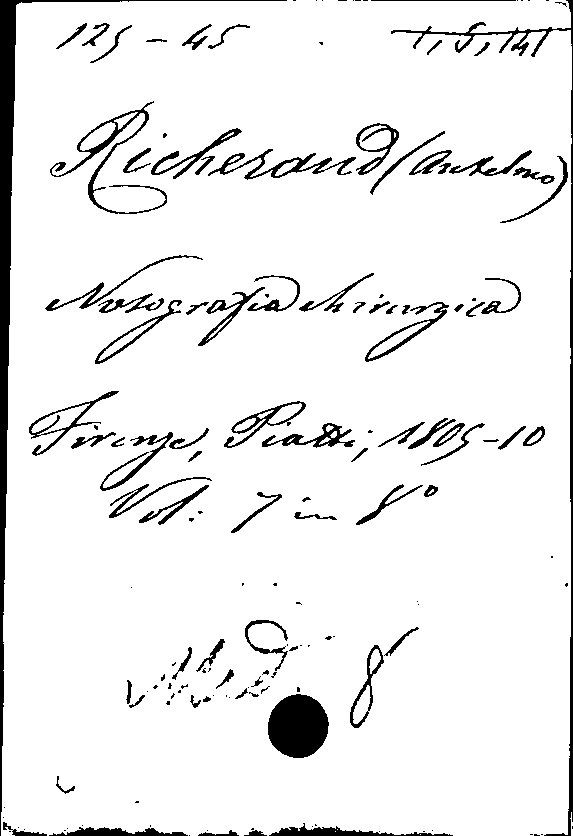 125-45 1,5,141
Richerand (Anselmo)
Nosografia chirurgica
Firenze, Piatti, 1805-10
Vol: 7 in 8°
Med. 8